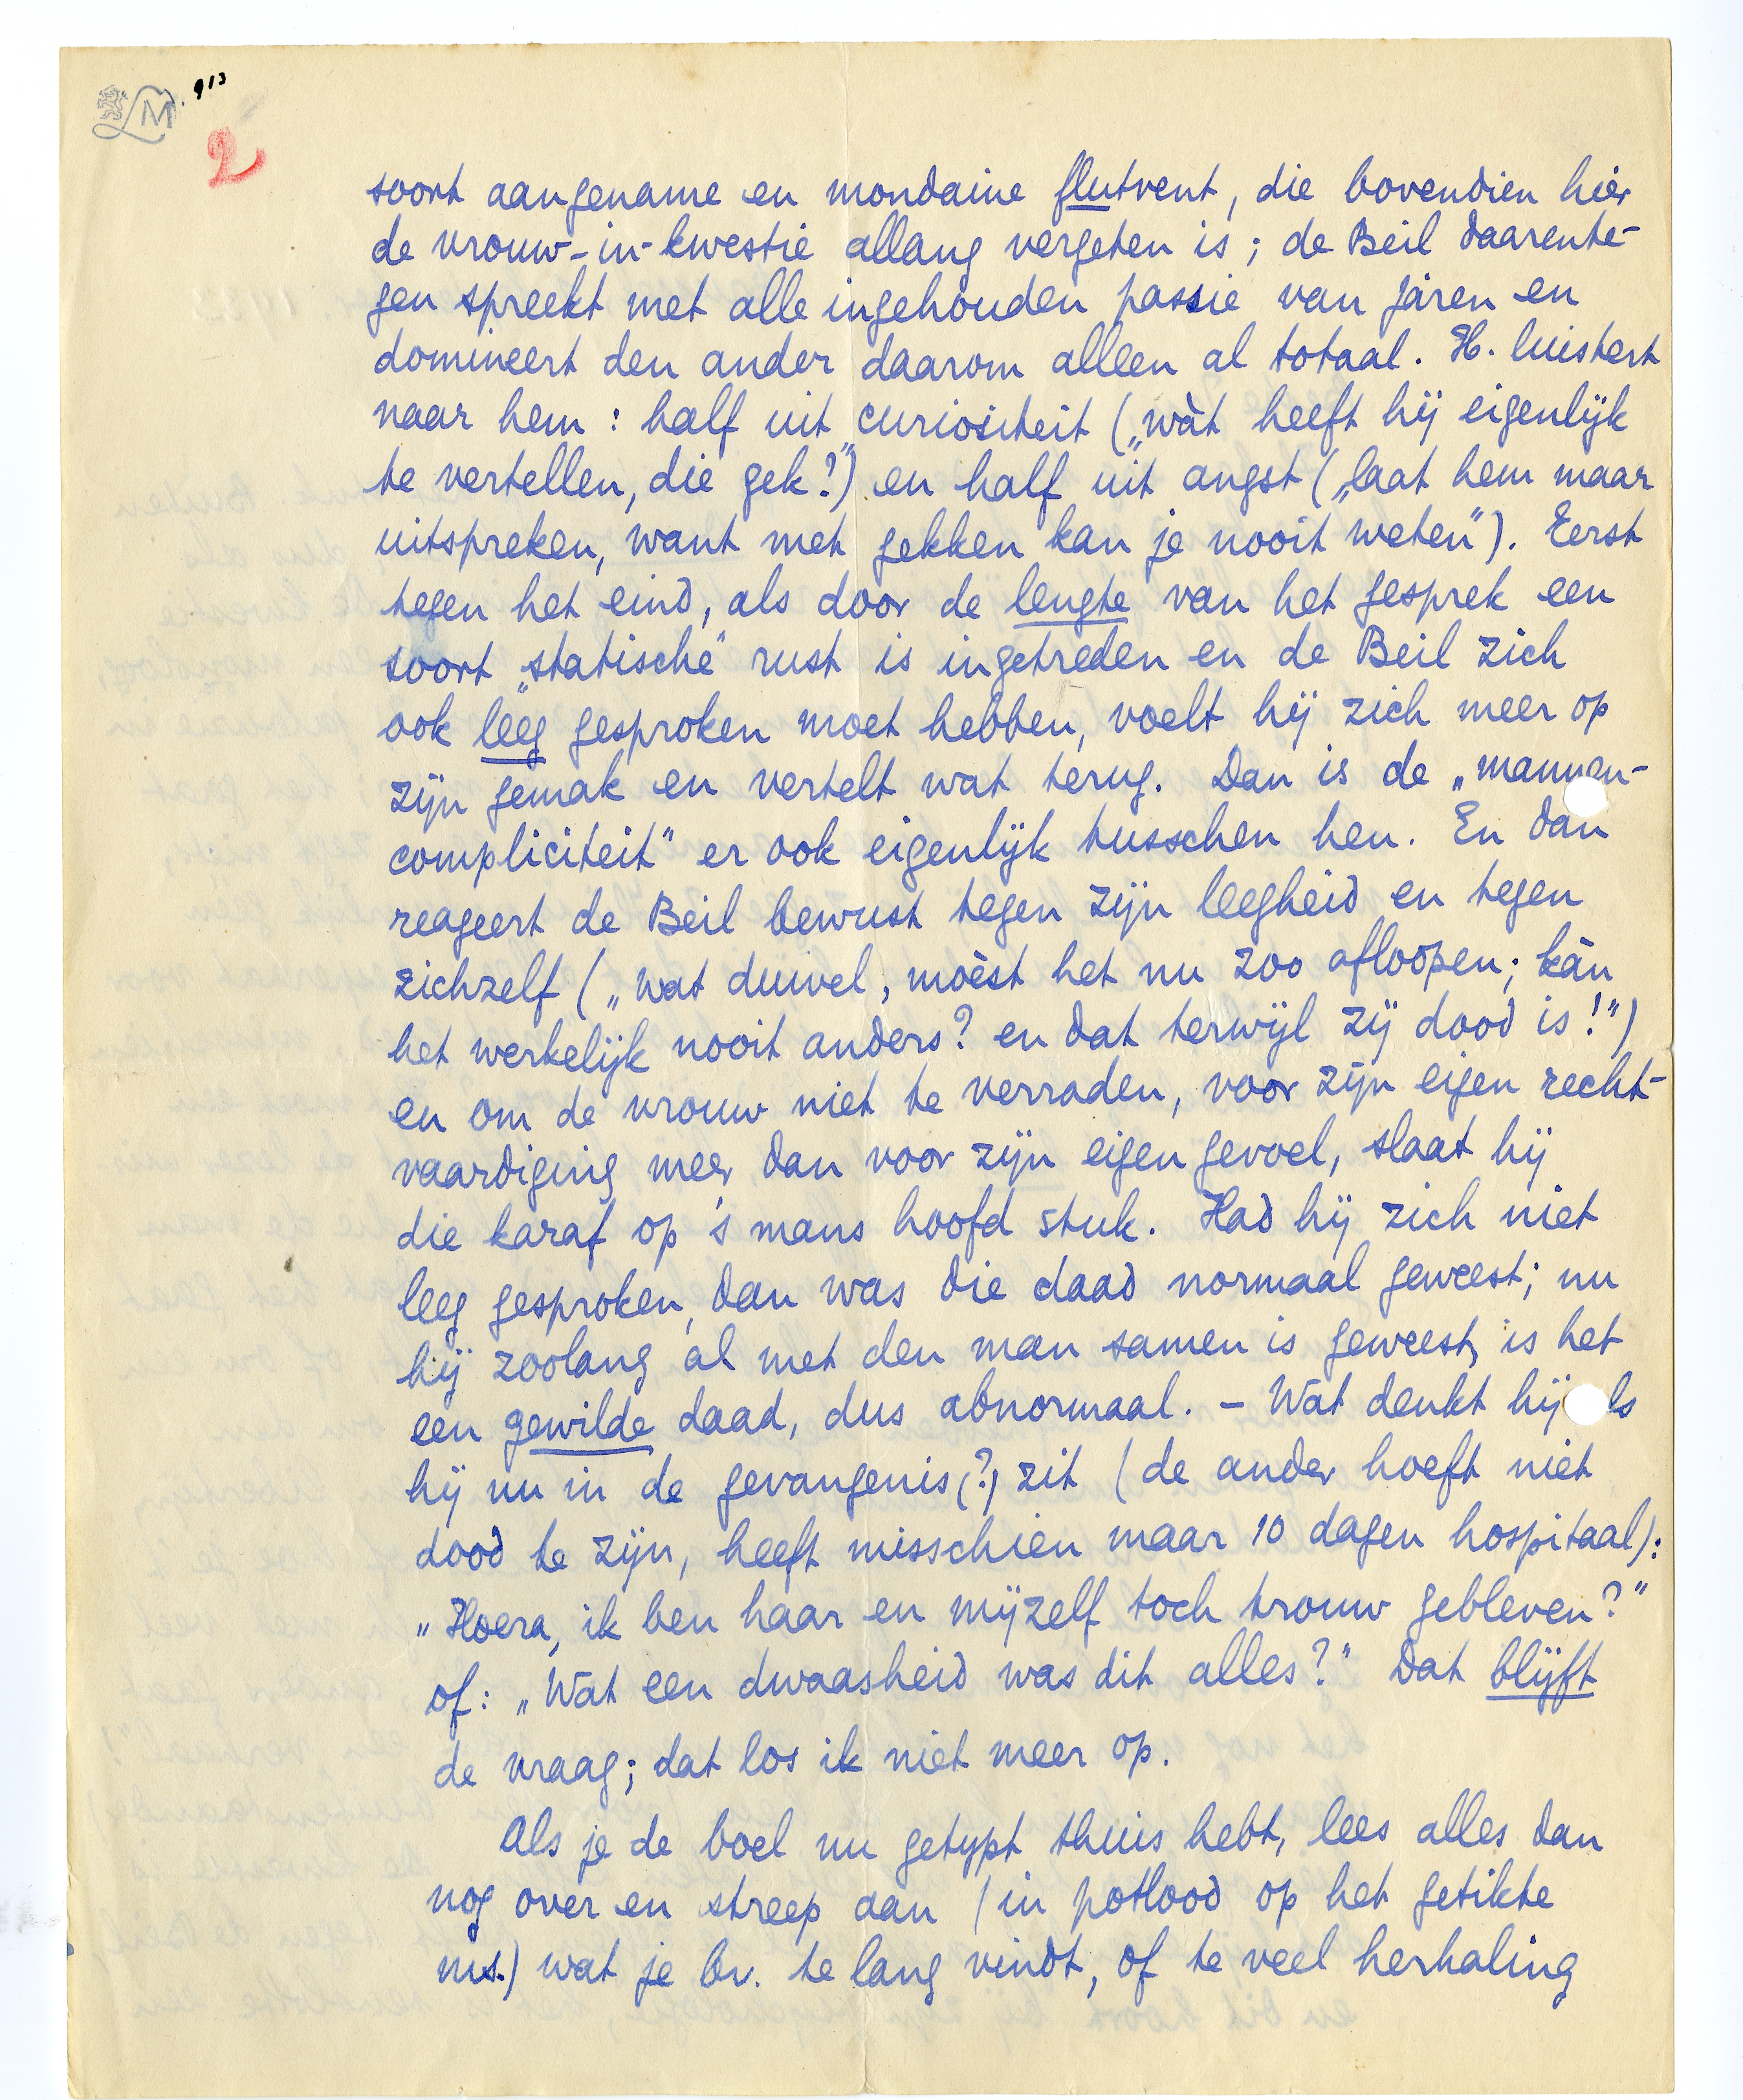 LM. 913
2
soort aangename en mondaine flutvent, die bovendien hier
de vrouw-in-kwestie allang vergeten is; de Beil daarente-
gen spreekt met alle ingehouden passie van jaren en
domineert den ander daarom alleen al totaal. H. luistert
naar hem: half uit curiositeit („wàt heeft hij eigenlijk
te vertellen, die gek?”) en half uit angst („laat hem maar
uitspreken, want met gekken kan je nooit weten”). Eerst
tegen het eind, als door de lengte van het gesprek een
soort „statische” rust is ingetreden en de Beil zich
ook leeg gesproken moet hebben, voelt hij zich meer op
zijn gemak en vertelt wat terug. Dan is de „mannen-
compliciteit” er ook eigenlijk tusschen hen. En dan
reageert de Beil bewust tegen zijn leegheid en tegen
zichzelf („wat duivel, moèst het nu zoo afloopen; kàn
het werkelijk nooit anders? en dat terwijl zij dood is!”)
en om de vrouw niet te verraden, voor zijn eigen recht-
vaardiging meer dan voor zijn eigen gevoel, slaat hij
die karaf op 's mans hoofd stuk. Had hij zich niet
leeg gesproken, dan was die daad normaal geweest; nu
hij zoolang al met den man samen is geweest, is het
een gewilde daad, dus abnormaal. – Wat denkt hij als
hij nu in de gevangenis (?) zit (de ander hoeft niet
dood te zijn, heeft misschien maar 10 dagen hospitaal):
„Hoera, ik ben haar en mijzelf toch trouw gebleven?”
of: „Wat een dwaasheid was dit alles?” Dat blijft
de vraag; dat los ik niet meer op.
Als je de boel nu getypt thuis hebt, lees alles dan
nog over en streep aan (in potlood op het getikte
ms.) wat je bv. te lang vindt, of te veel herhaling